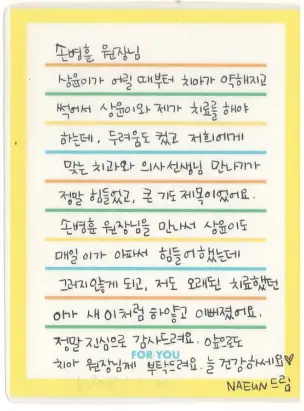 손병훈 원장님
상윤이가 어릴 때부터 치아가 약해지고
썩어서 상윤이와 제가 치료를 해야
하는데, 두려움도 컸고 저희에게
맞는 치과와 의사선생님 만나기가
정말 힘들었고, 큰 기도제목이었어요.
손병훈 원장님을 만나서 상윤이도
매일 이가 아파서 힘들어했는데
그러지않게 되고, 저도 오래된 치료했던
이가 새 이처럼 하얗고 이뻐졌어요.
정말 진심으로 감사드려요. 앞으로도
FOR YOU
치아 원장님께 부탁드려요. 늘 건강하세요♡
NAEUN 드림